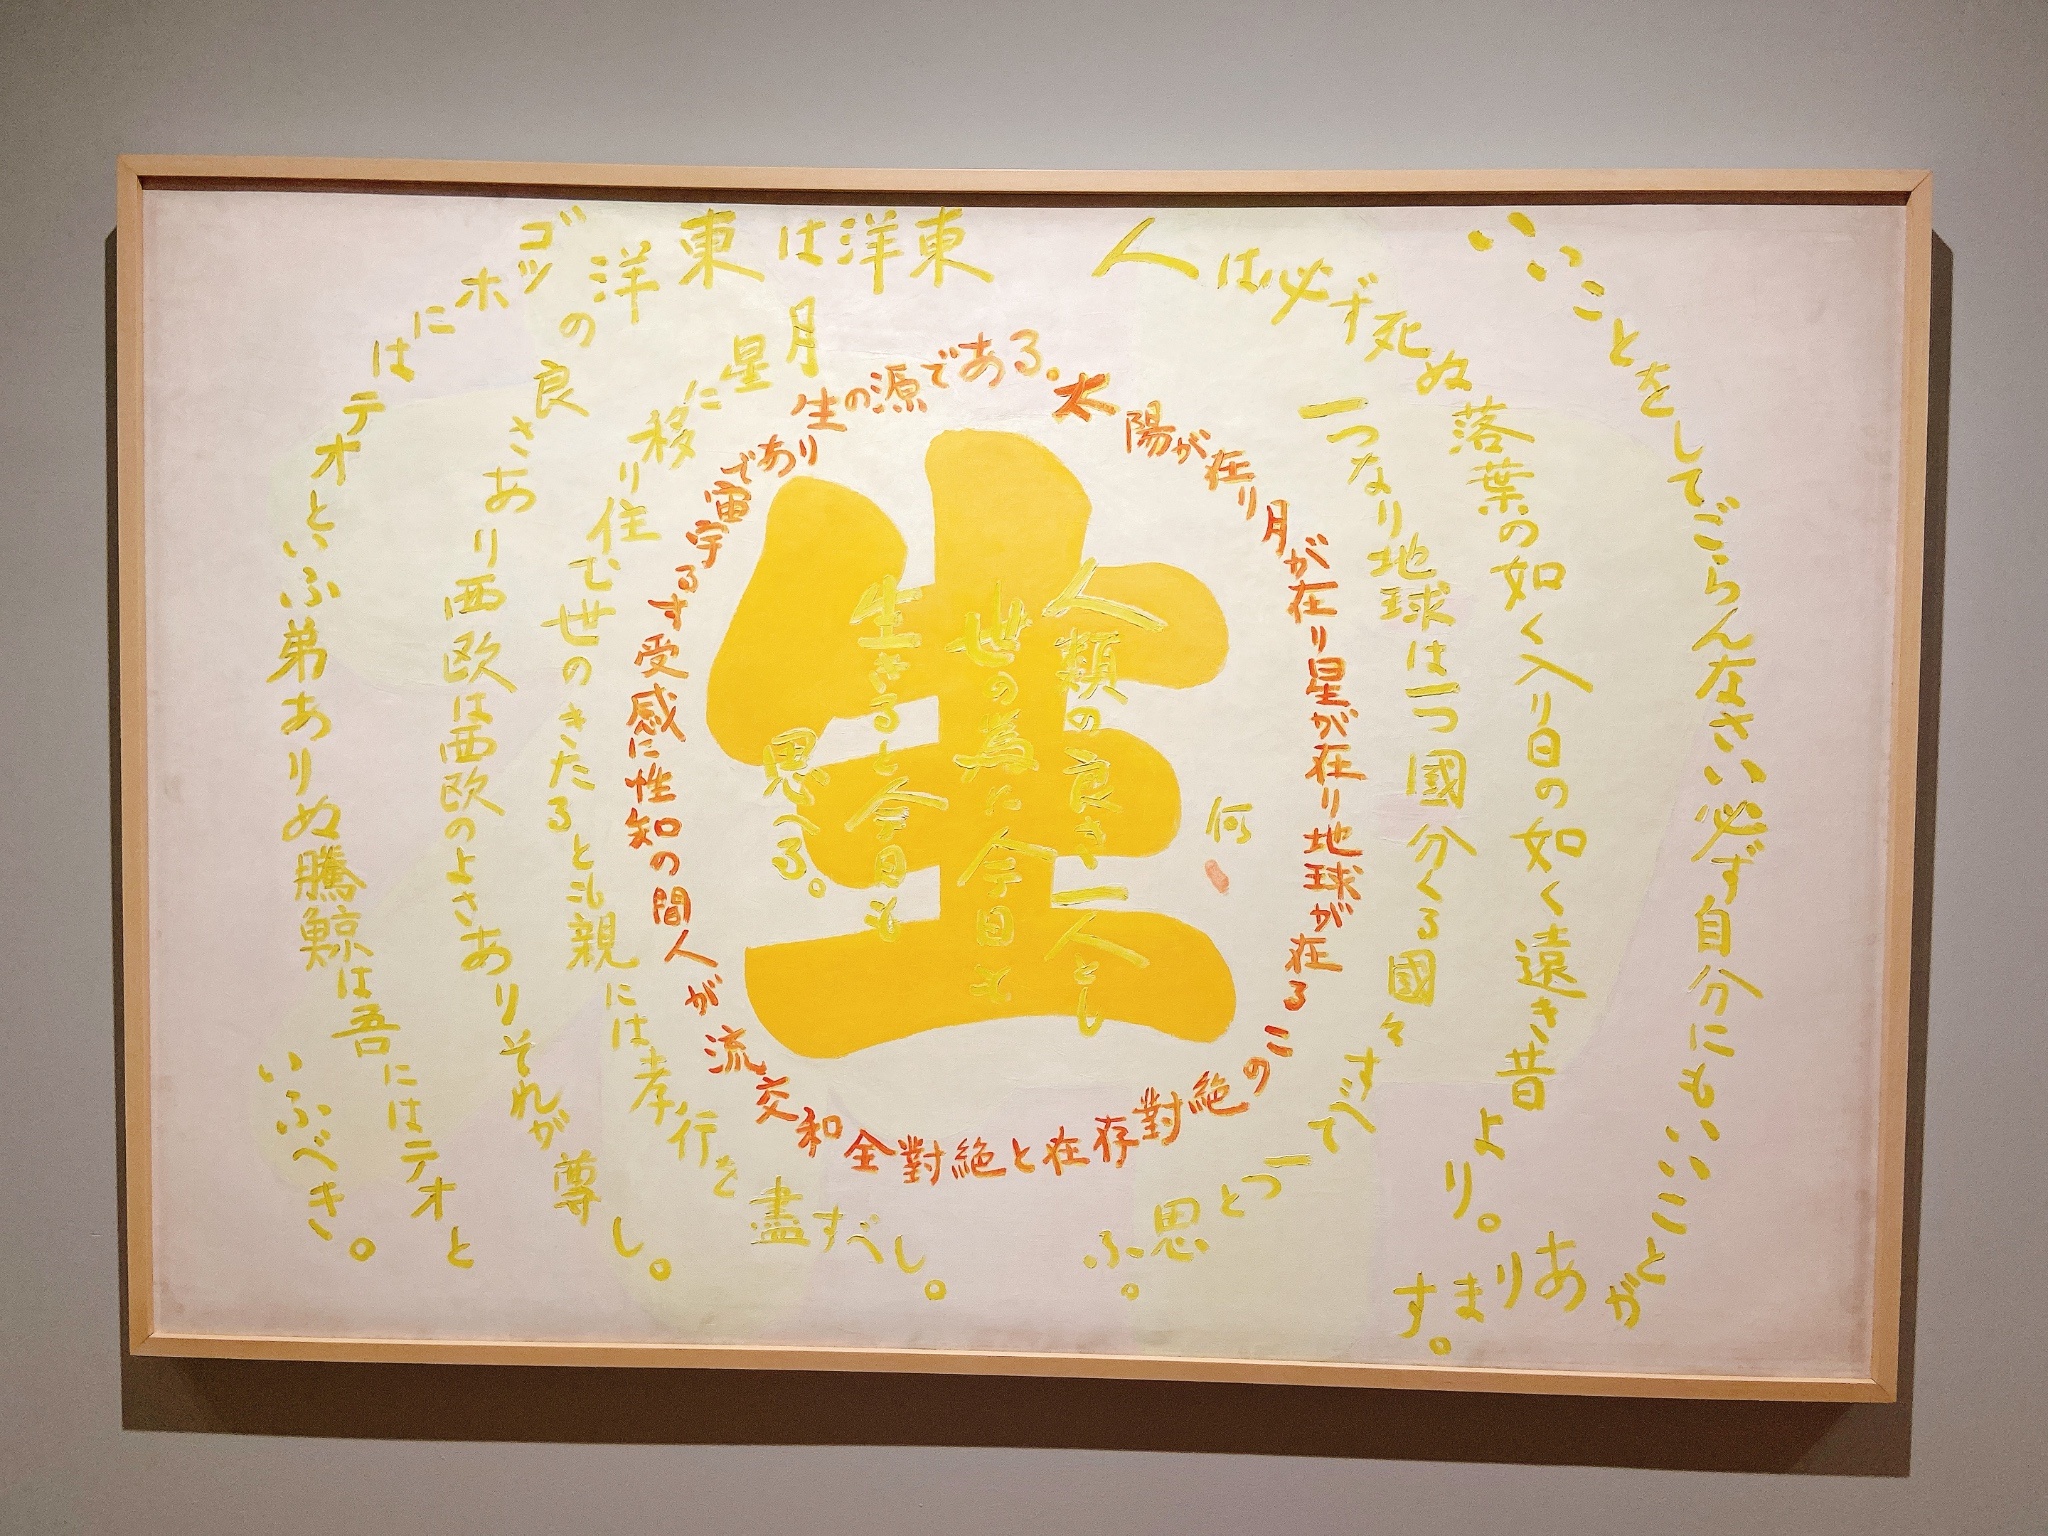 いいことをしてごらんなさい必ず自分にもいいことがあります。
人は必ず死ぬ落葉の如く入り日の如く遠き昔より。
一つなり地球は一つ國分くる國々すべて一つと思ふ。
太陽が在り月が在り星が在り地球が在るこの絶對存在と絶對全和交流が人間の知性に感受する宇宙であり生の源である。
生
何
人類の良き一人とし
世の為に今日も
生きると今日も
思へる。
月星に移り住む世のきたるとも親には孝行を盡すべし。
東洋は東洋の良さあり西欧は西欧のよさありそれが尊し。
ゴッホにはテオといふ弟ありぬ騰鯨は吾にはテオと
いふべき。